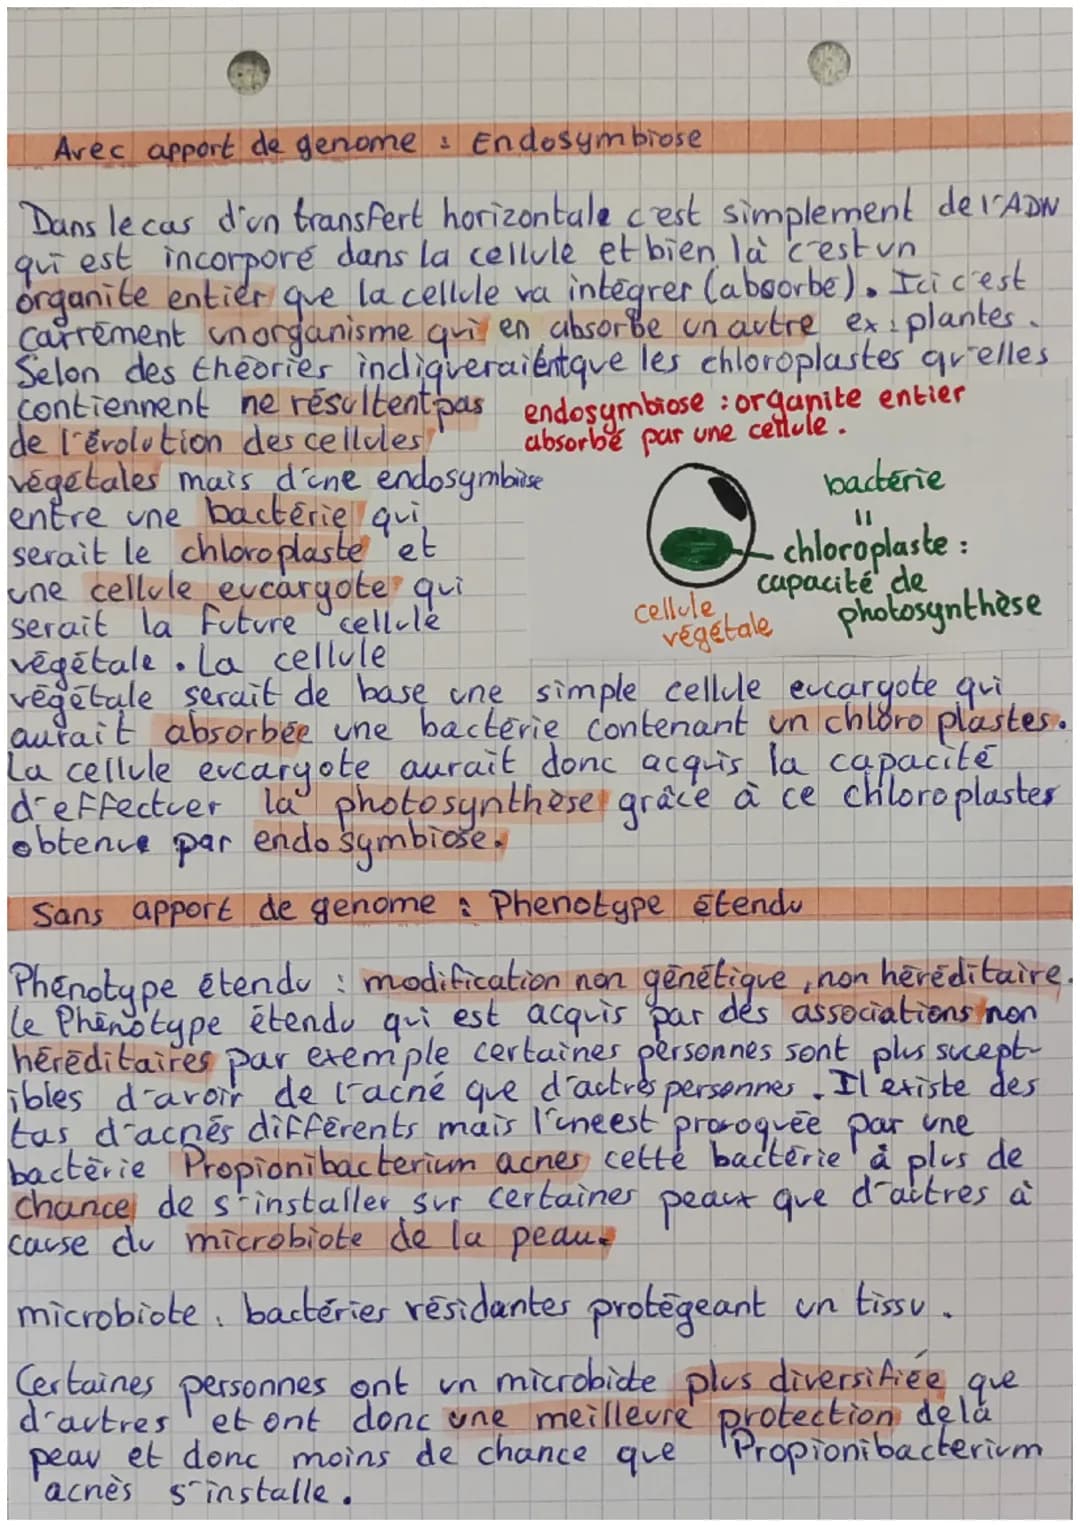 Avec apport de genome : Endosymbiose
Dans le cas d'un transfert horizontale c'est simplement de l'ADN
qui est incorporé dans la cellule et bien là c'est un
organite entier que la cellule va intégrer (absorbe). Ici c'est
carrément un organisme qui en absorbe un autre ex : plantes.
Selon des théories indiqueraient que les chloroplastes qu'elles
contiennent ne résultent pas
de l'évolution des cellules
végétales mais d'une endosymbiose
entre une bactérie qui
serait le chloroplaste et
une cellule eucaryote qui
serait la future cellule
végétale. La cellule
endosymbiose : organite entier
absorbé par une cellule.
bactérie
=
chloroplaste :
capacité de
photosynthèse
cellule
végétale
végétale serait de base une simple cellule eucaryote qui
aurait absorbée une bactérie contenant un chloroplastes.
La cellule eucaryote aurait donc acquis la capacité
d'effectuer la photosynthèse grâce à ce chloroplastes
obtenue par endosymbiose.
Sans apport de genome : Phenotype étendu
Phénotype étendu : modification non génétique, non héréditaire.
Le Phénotype étendu qui est acquis par des associations non
héréditaires par exemple certaines personnes sont plus sucept-
ibles d'avoir de l'acné que d'autres personnes. Il existe des
tas d'acnés différents mais l'une est provoquée par une
bactérie Propionibacterium acnes cette bactérie à plus de
chance de s'installer sur certaines peaux que d'autres à
cause du microbiote de la peau.
microbiote : bactéries résidantes protégeant un tissu.
Certaines personnes ont un microbiote plus diversifiée que
d'autres et ont donc une meilleure protection de la
peau et donc moins de chance que Propionibacterium
acnès s'installe.